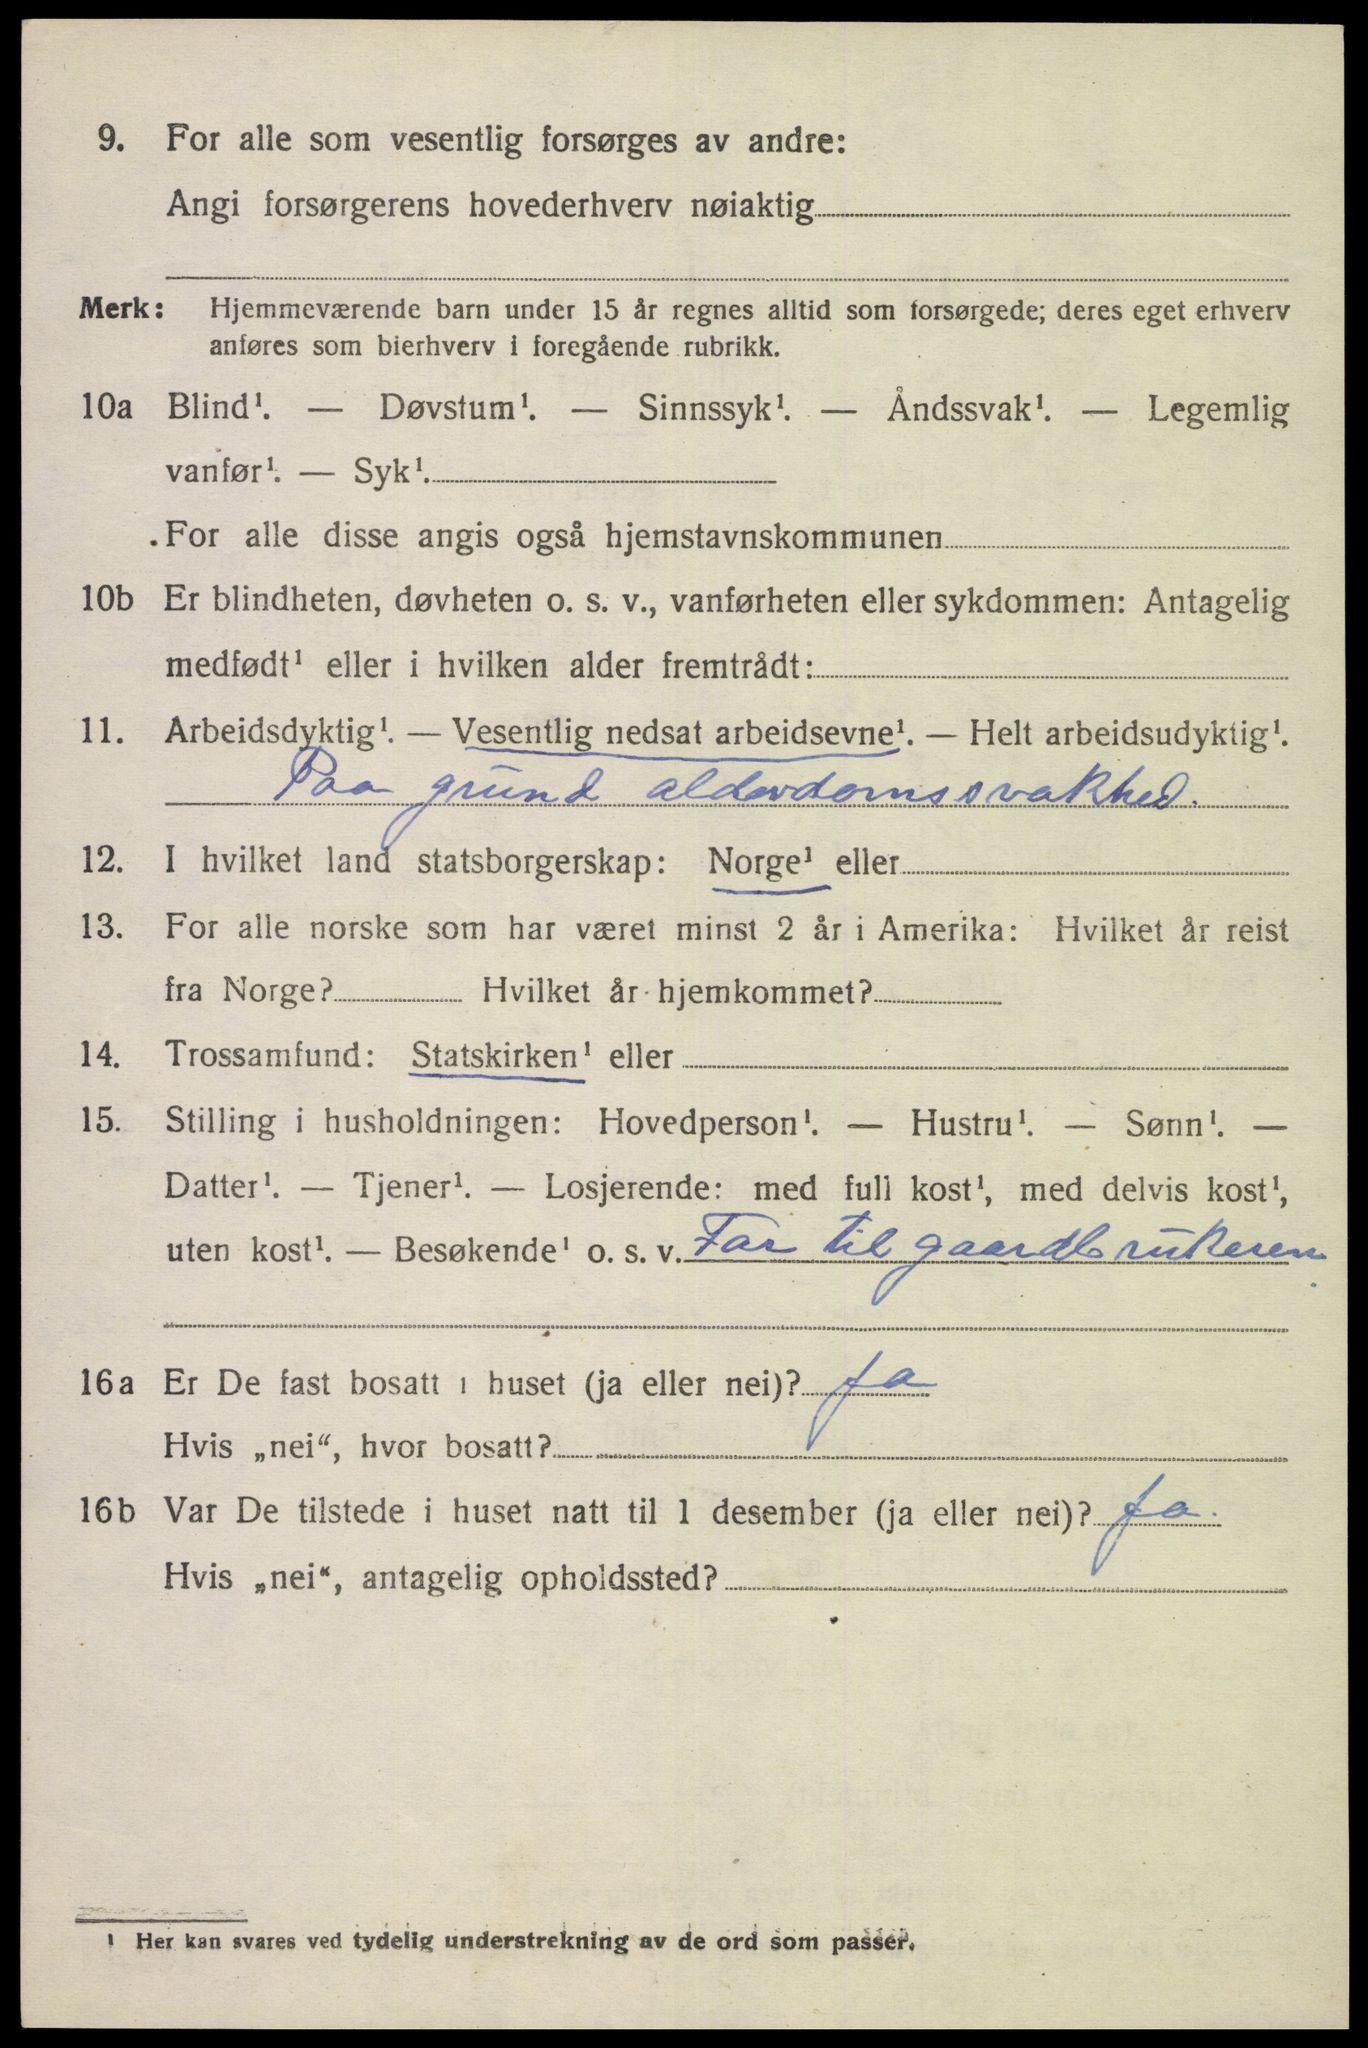 9. For alle som vesentlig forsørges av andre:
Angi forsørgerens hovederhverv nøiaktig
Merk: Hjemmeværende barn under 15 år regnes alltid som forsørgede; deres eget erhverv
anføres som bierhverv i foregående rubrikk.
10a Blind¹. — Døvstum¹. — Sinnssyk¹. — Åndssvak¹. — Legemlig
vanfør¹. — Syk¹.
For alle disse angis også hjemstavnskommunen
10b Er blindheten, døvheten o. s. v., vanførheten eller sykdommen: Antagelig
medfødt¹ eller i hvilken alder fremtrådt:
11. Arbeidsdyktig¹. — Vesentlig nedsat arbeidsevne¹. — Helt arbeidsudyktig¹.
Paa grund alderdomssvakhed.
12. I hvilket land statsborgerskap: Norge¹ eller
13. For alle norske som har været minst 2 år i Amerika: Hvilket år reist
fra Norge? Hvilket år hjemkommet?
14. Trossamfund: Statskirken¹ eller
15. Stilling i husholdningen: Hovedperson¹. — Hustru¹. — Sønn¹. —
Datter¹. — Tjener¹. — Losjerende: med full kost¹, med delvis kost¹,
uten kost¹. — Besøkende¹ o. s. v. Far til gaardbrukeren.
16a Er De fast bosatt i huset (ja eller nei)? ja
Hvis „nei“, hvor bosatt?
16b Var De tilstede i huset natt til 1 desember (ja eller nei)? ja.
Hvis „nei“, antagelig opholdssted?
¹ Her kan svares ved tydelig understrekning av de ord som passer.